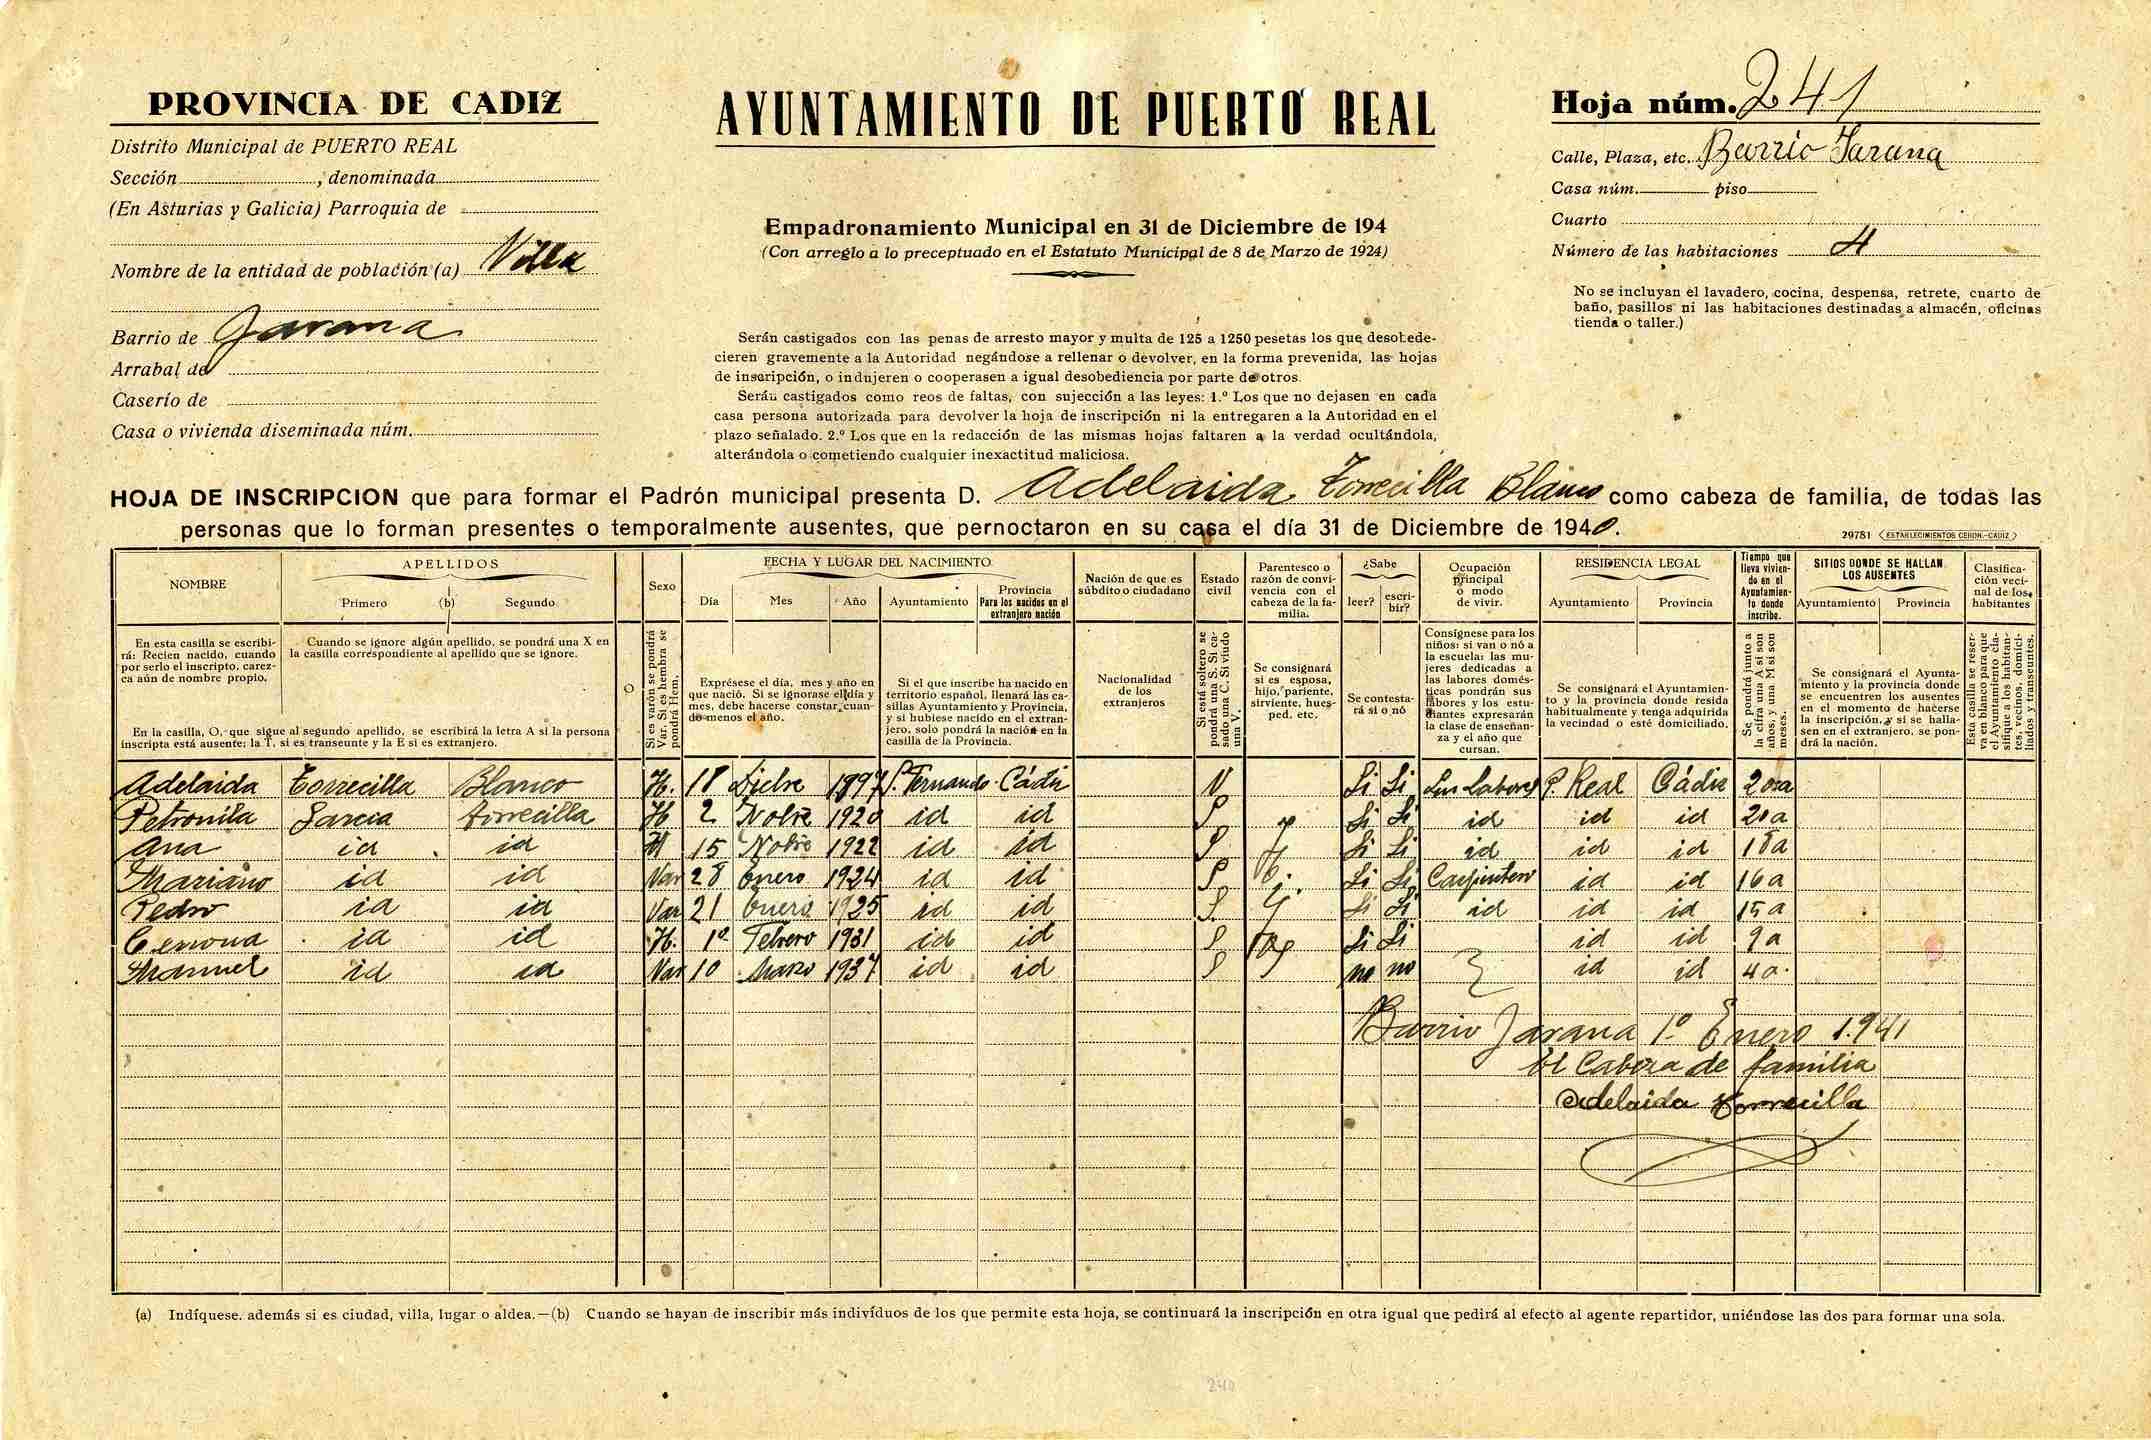 PROVINCIA DE CADIZ
Distrito Municipal de PUERTO REAL
Sección , denominada
(En Asturias y Galicia) Parroquia de
Nombre de la entidad de población (a) Villa
Barrio de Jarana
Arrabal de
Caserío de
Casa o vivienda diseminada núm.
AYUNTAMIENTO DE PUERTO REAL
Empadronamiento Municipal en 31 de Diciembre de 194
(Con arreglo a lo preceptuado en el Estatuto Municipal de 8 de Marzo de 1924)
Serán castigados con las penas de arresto mayor y multa de 125 a 1250 pesetas los que desobede-
cieren gravemente a la Autoridad negándose a rellenar o devolver, en la forma prevenida, las hojas
de inscripción, o indujeren o cooperasen a igual desobediencia por parte de otros.
Serán castigados como reos de faltas, con sujección a las leyes: 1.º Los que no dejasen en cada
casa persona autorizada para devolver la hoja de inscripción ni la entregaren a la Autoridad en el
plazo señalado. 2.º Los que en la redacción de las mismas hojas faltaren a la verdad ocultándola,
alterándola o cometiendo cualquier inexactitud maliciosa.
Hoja núm. 241
Calle, Plaza, etc. Barrio Jarana
Casa núm. piso
Cuarto
Número de las habitaciones 4
No se incluyan el lavadero, cocina, despensa, retrete, cuarto de
baño, pasillos ni las habitaciones destinadas a almacén, oficinas
tienda o taller.)
HOJA DE INSCRIPCION que para formar el Padrón municipal presenta D. Adelaida Torrecilla Blanco como cabeza de familia, de todas las
personas que lo forman presentes o temporalmente ausentes, que pernoctaron en su casa el día 31 de Diciembre de 1940.
29781 (ESTABLECIMIENTOS CERON.-CADIZ)
NOMBRE
APELLIDOS
Primero (b) Segundo
Sexo
FECHA Y LUGAR DEL NACIMIENTO
Día Mes Año Ayuntamiento
Provincia
Para los nacidos en el
extranjero nación
Nación de que es
súbdito o ciudadano
Estado
civil
Parentesco o
razón de convi-
vencia con el
cabeza de la fa-
milia.
¿Sabe
leer? escri-
bir?
Ocupación
principal
o modo
de vivir.
RESIDENCIA LEGAL
Ayuntamiento Provincia
Tiempo que
lleva vivien-
do en el
Ayuntamien-
to donde
inscribe.
SITIOS DONDE SE HALLAN
LOS AUSENTES
Ayuntamiento Provincia
Clasifica-
ción veci-
nal de los
habitantes
En esta casilla se escribi-
rá: Recien nacido, cuando
por serlo el inscripto, carez-
ca aún de nombre propio.
Cuando se ignore algún apellido, se pondrá una X en
la casilla correspondiente al apellido que se ignore.
En la casilla, O, que sigue al segundo apellido, se escribirá la letra A si la persona
inscripta está ausente; la T, si es transeunte y la E si es extranjero.
O
Si es varón se pondrá
Var. Si es hembra se
pondrá Hem.
Exprésese el día, mes y año en
que nació. Si se ignorase el día y
mes, debe hacerse constar cuan-
do menos el año.
Si el que inscribe ha nacido en
territorio español, llenará las ca-
sillas Ayuntamiento y Provincia,
y si hubiese nacido en el extran-
jero, solo pondrá la nación en la
casilla de la Provincia.
Nacionalidad
de los
extranjeros
Si está soltero se
pondrá una S. Si ca-
sado una C. Si viudo
una V.
Se consignará
si es esposa,
hijo, pariente,
sirviente, hues-
ped, etc.
Se contesta-
rá si o nó
Consígnese para los
niños: si van o nó a
la escuela: las mu-
jeres dedicadas a
las labores domés-
ticas pondrán sus
labores y los estu-
diantes expresarán
la clase de enseñan-
za y el año que
cursan.
Se consignará el Ayuntamien-
to y la provincia donde resida
habitualmente y tenga adquirida
la vecindad o esté domiciliado.
Se pondrá junto a
la cifra una A si son
años; y una M si son
meses.
Se consignará el Ayunta-
miento y la provincia donde
se encuentren los ausentes
en el momento de hacerse
la inscripción, y si se halla-
sen en el extranjero, se pon-
drá la nación.
Esta casilla se reser-
va en blanco para que
el Ayuntamiento cla-
sifique a los habitan-
tes, vecinos, domici-
liados y transeuntes.
Adelaida Torrecilla Blanco H. 18 Dicbre 1897 S. Fernando Cádiz V Si Si Sus Labores P. Real Cádiz 20 a
Petronila Garcia Torrecilla H 2 Nobre 1920 id id S Si Si id id id 20 a
Ana id id H 15 Nobre 1922 id id S Si Si id id id 18 a
Mariano id id Var 28 Enero 1924 id id S Si Si Carpintero id id 16 a
Pedro id id Var 21 Enero 1925 id id S. Si Si id id id 15 a
id id H. 1º Febrero 1931 id id S Si Si id id 9 a
Manuel id id Var 10 Marzo 1937 id id S no no id id 4 a.
Barrio Jarana 1º Enero 1.941
El Cabeza de familia
Adelaida Torrecilla
(a) Indíquese, además si es ciudad, villa, lugar o aldea.—(b) Cuando se hayan de inscribir más individuos de los que permite esta hoja, se continuará la inscripción en otra igual que pedirá al efecto al agente repartidor, uniéndose las dos para formar una sola.
240